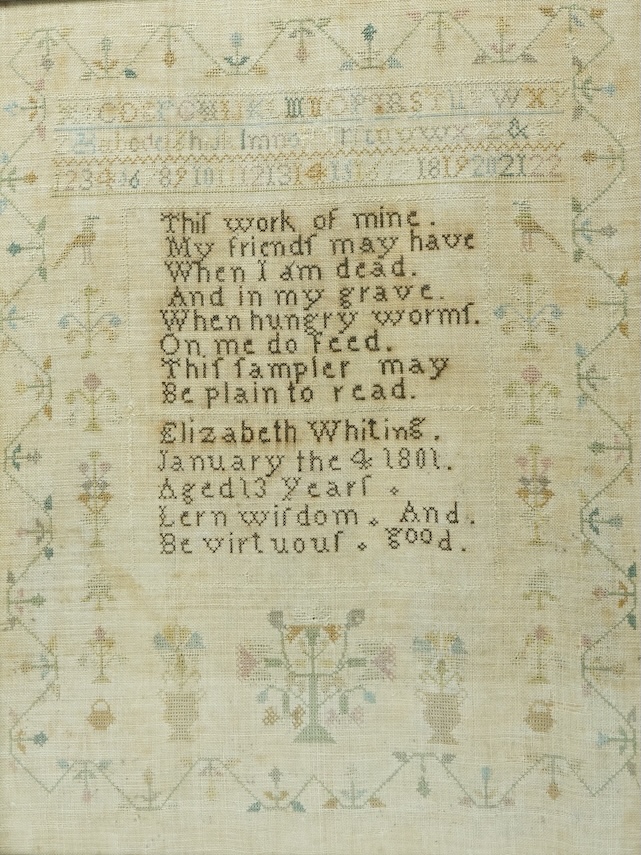 CDE
RST W X
Z &
1234 6 89 10 11 12 13 14 18 19 20 21 22
Thiſ work of mine.
My friendſ may have
When I am dead.
And in my grave.
When hungry wormſ.
On me do feed.
Thiſ ſampler may
Be plain to read.
Elizabeth Whiting.
January the 4 1801.
Aged 13 Yearſ .
Lern wiſdom . And.
Be virtuouſ . good.